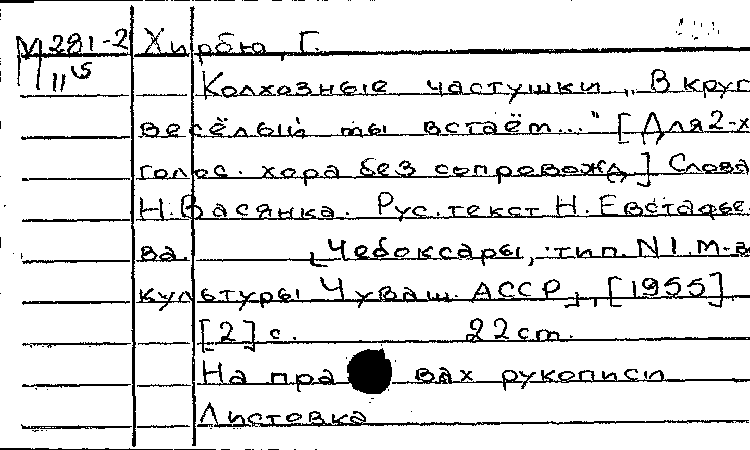 М 281-2 Хирбю, Г.
11
Колхозные частушки „В круг
весёлый мы встаём..." [Для 2-х
голос. хора без сопровожд.] Слова
Н. Васянка. Рус. текст Н. Евстафье-
ва. [Чебоксары, тип. N1. М-ва
культуры Чуваш. АССР], [1955]
[2] с. 22 cm.
На правах рукописи
Листовка